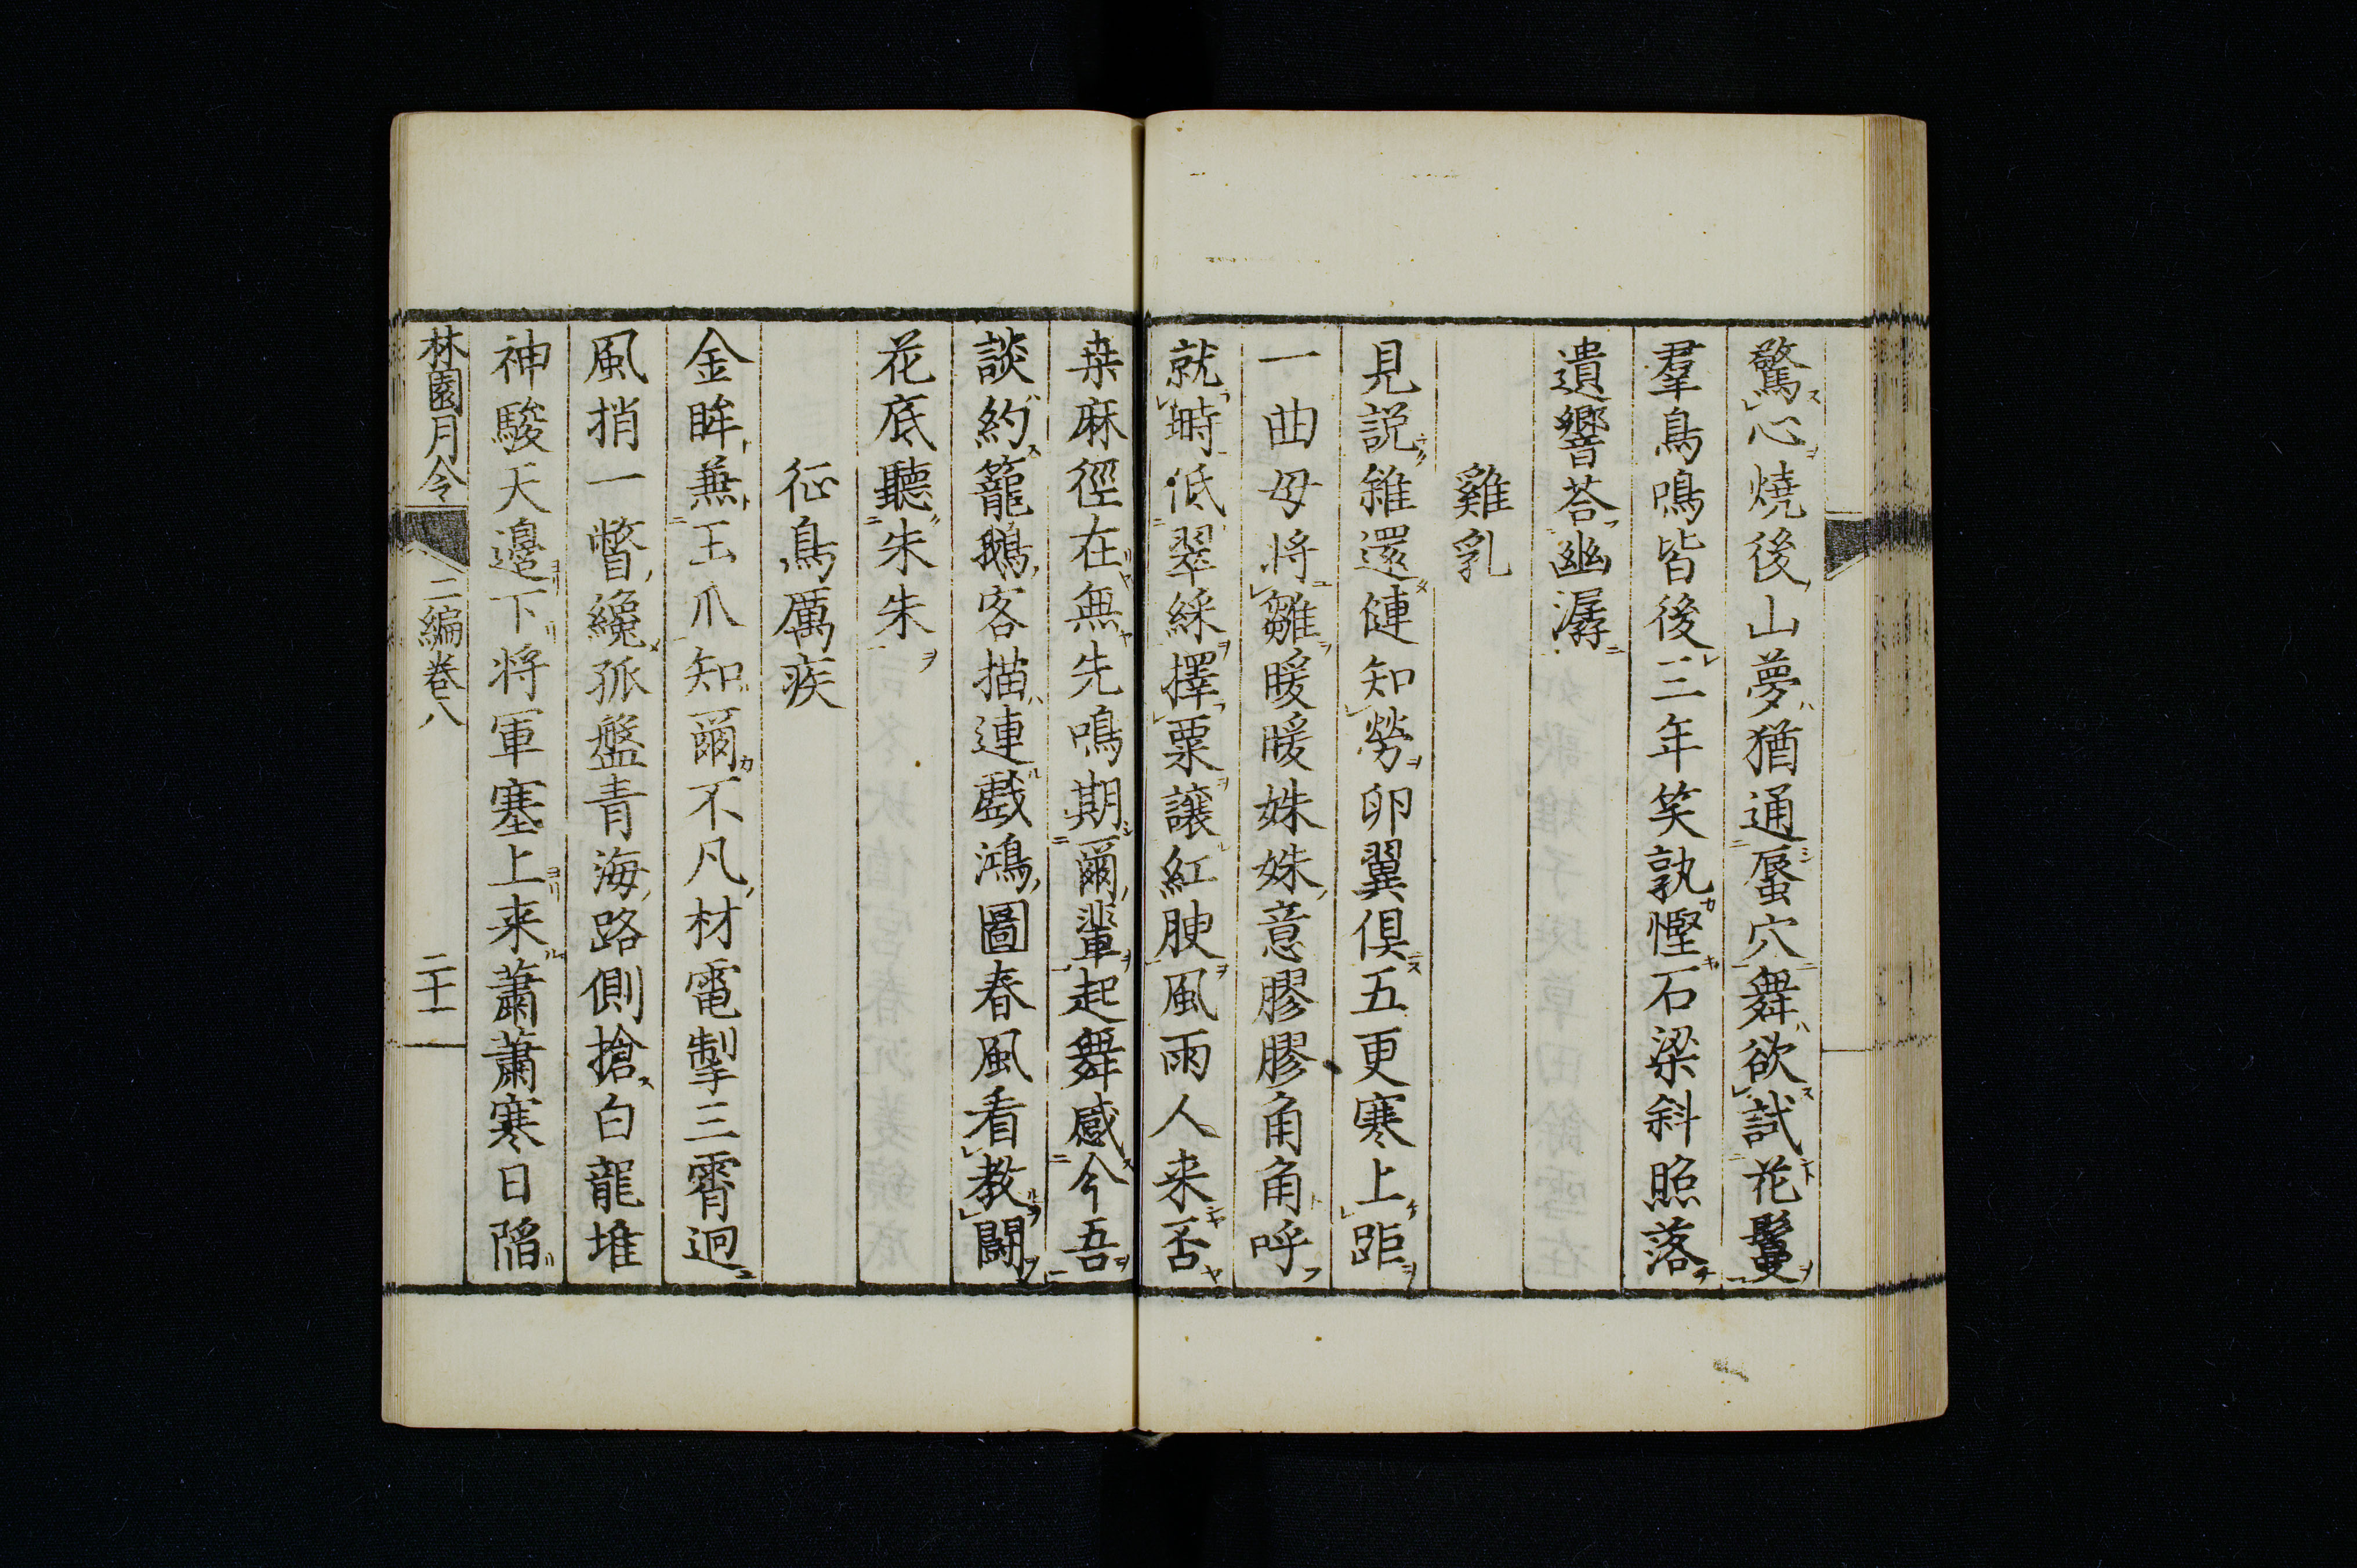 驚心燒後山夢猶通蜃穴舞欲試花鬘
羣鳥鳴皆後三年笑孰慳石梁斜照落
遺響荅幽潺
雞乳
見説雛還健知勞卵翼俱五更寒上距
一曲母将雛暖暖姝姝意膠膠角角呼
就塒低翠綵擇粟讓紅腴風雨人来否
桒麻徑在無先鳴期爾輩起舞感今吾
談約籠鵝客描連戲鴻圖春風看教鬪
花底聽朱朱
征鳥厲疾
金眸兼玉爪知爾不凡材電掣三霄迥
風捎一瞥纔孤盤青海路側搶白龍堆
神駿天邊下将軍塞上来蕭蕭寒日陷
林園月令
二編卷八
二十一